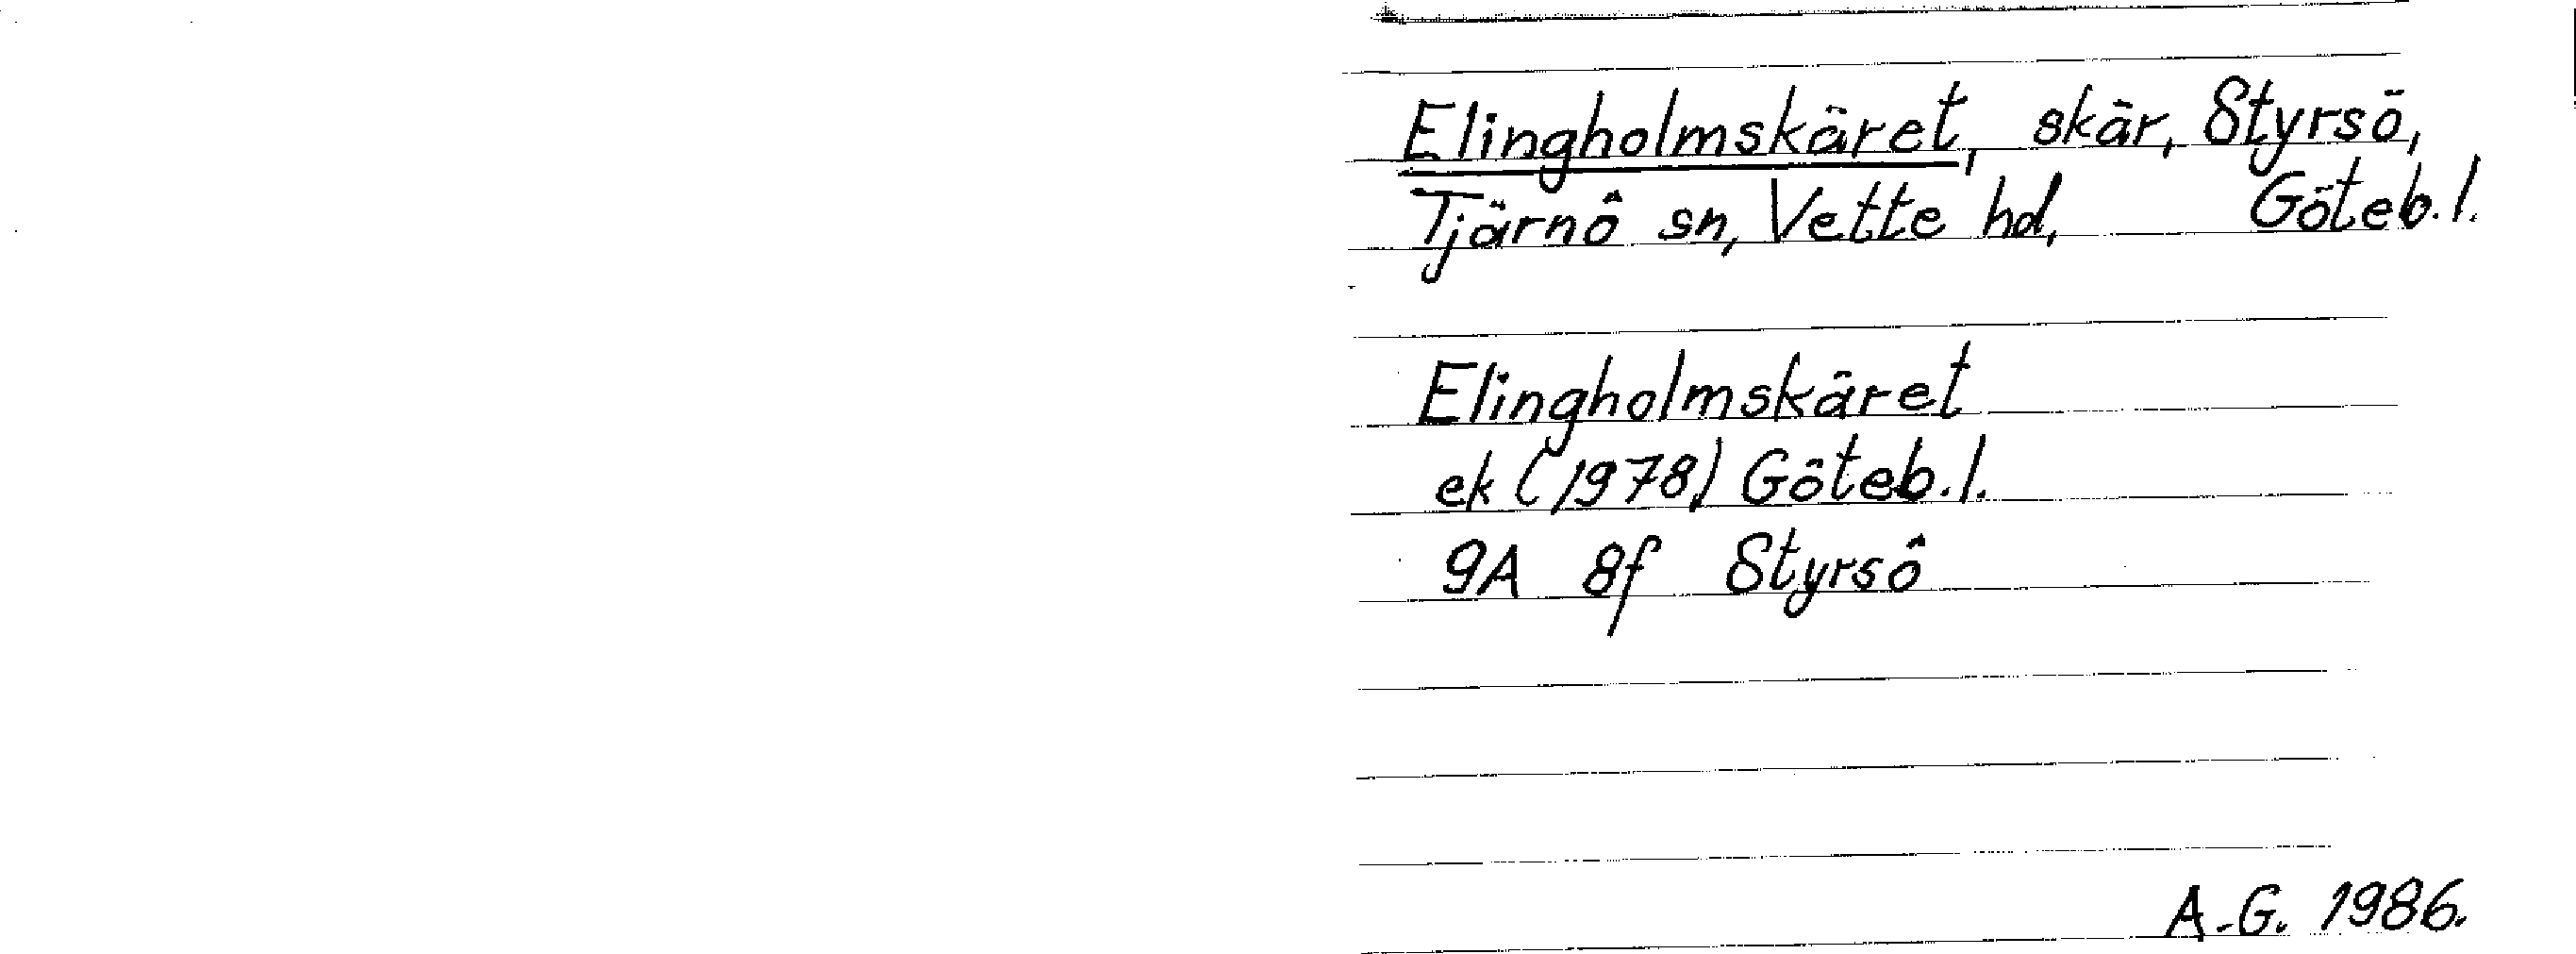 Elingholmskäret, skär, Styrsö,
Tjärnö sn, Vette hd, Göteb. l.
Elingholmskäret
ek (1978) Göteb. l.
9A 8f Styrsö
A.G. 1986.